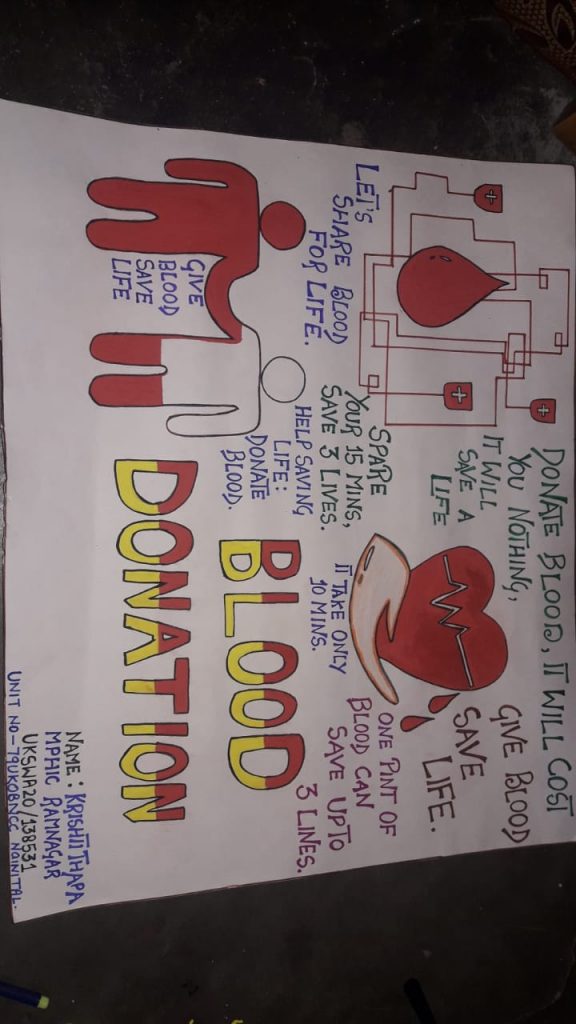 DONATE BLOOD, IT WILL COST
YOU NOTHING,
IT WILL
SAVE A
LIFE
GIVE BLOOD
SAVE
LIFE.
LET'S
SHARE BLOOD
FOR LIFE.
SPARE
YOUR 15 MINS,
SAVE 3 LIVES.
HELP SAVING
LIFE:
DONATE
BLOOD.
IT TAKE ONLY
10 MINS.
ONE PINT OF
BLOOD CAN
SAVE UPTO
3 LINES.
GIVE
BLOOD
SAVE
LIFE
BLOOD
DONATION
NAME: KRISHIT THAPA
MPHIC RAMNAGAR
UKSWA20/138531
UNIT NO-79UKOBNCC NOINITAL.